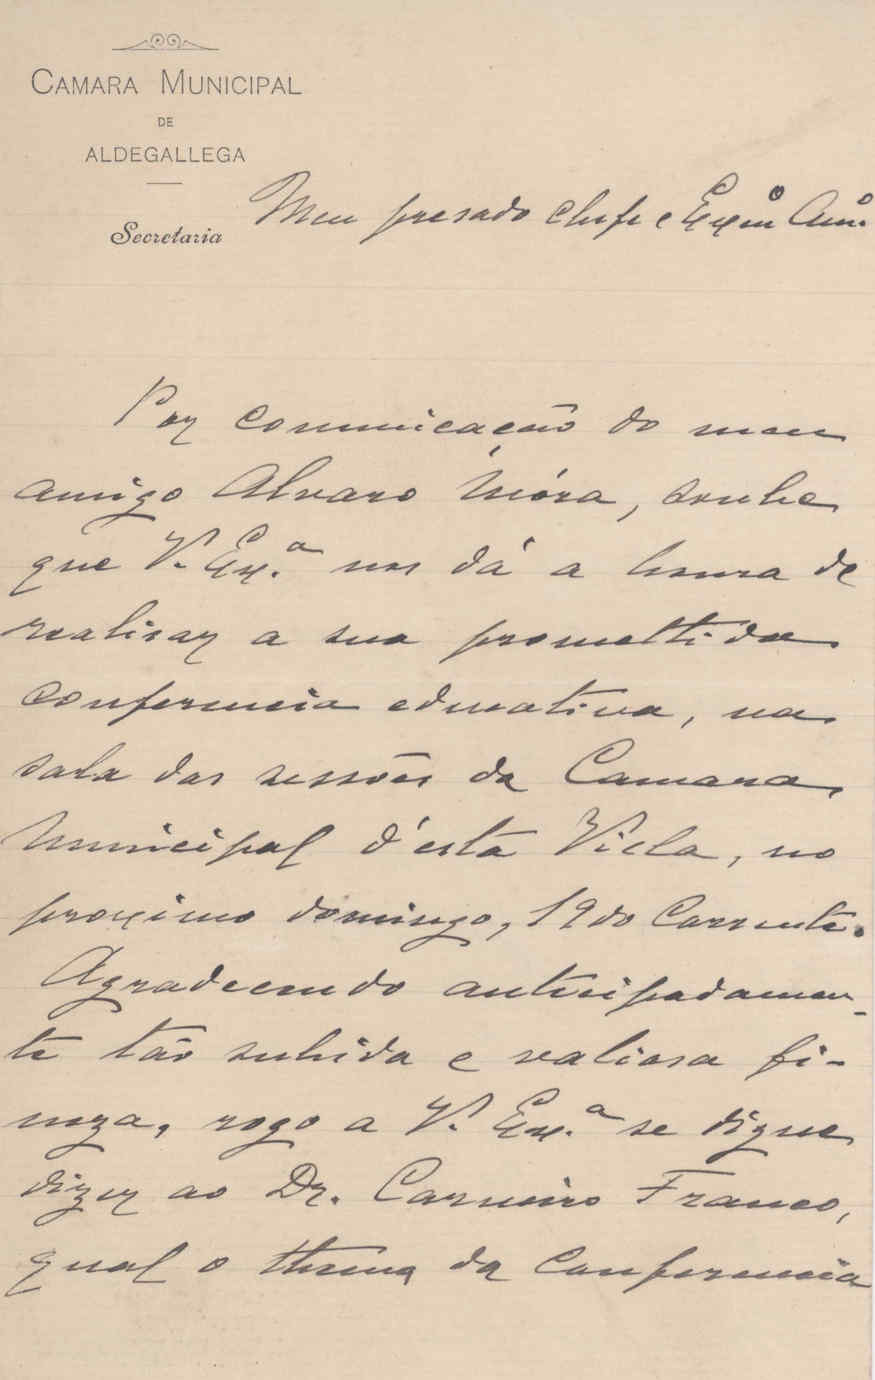 CAMARA MUNICIPAL
DE
ALDEGALLEGA
Secretaria
Meu presado chefe e Exmº Amº.
Por comunicação do meu
amigo Alvaro Móra, soube
que V. Ex.ª nos dá a honra de
realisar a sua promettida
conferencia educativa, na
sala das sessões da Camara
Municipal d'esta Villa, no
proximo domingo, 19 do corrente.
Agradecendo anticipadamen-
te tão subida e valiosa fi-
neza, rogo a V. Ex.ª se digne
dizer ao Dr. Carneiro Franco,
qual o thema da conferencia